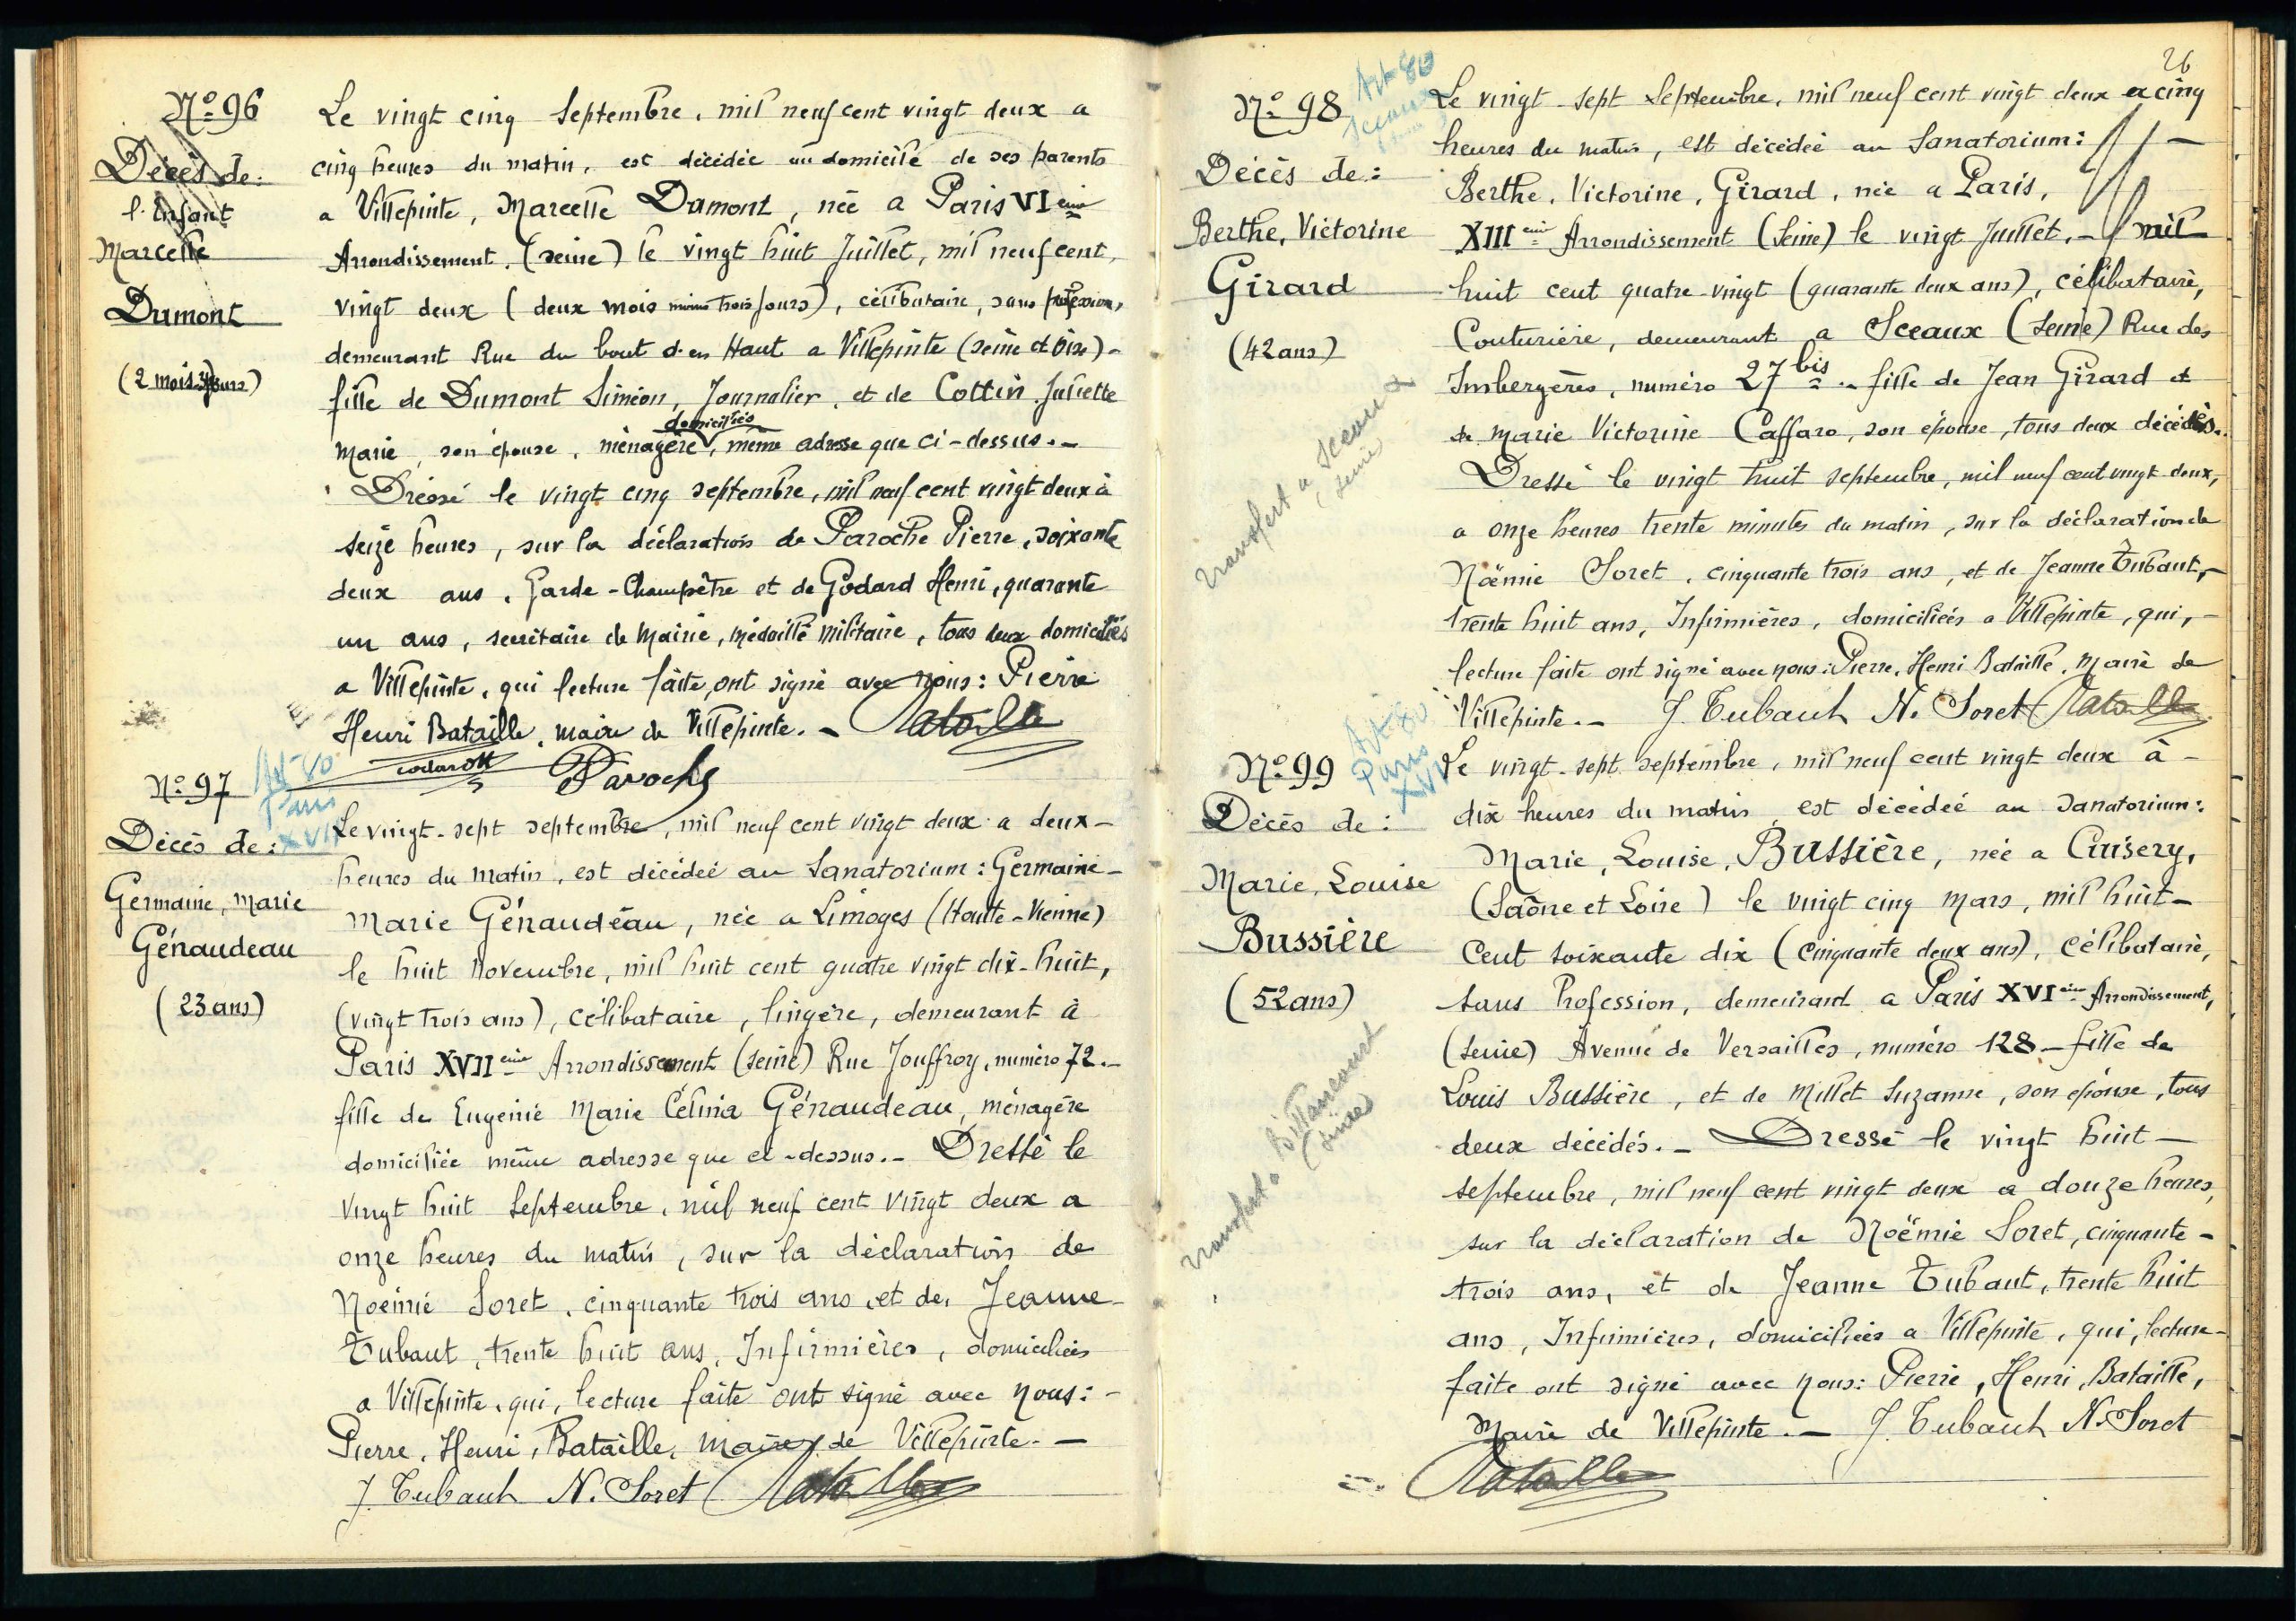 Nº 96
Décès de:
l'Enfant
Marcelle
Dumont
(2 mois jours)
Le vingt cinq Septembre, mil neuf cent vingt deux a
cinq heures du matin, est décédée au domicile de ses parents
a Villepinte, Marcelle Dumont, née a Paris VI eme
Arrondissement (seine) le vingt huit Juillet, mil neuf cent,
vingt deux (deux mois moins trois jours), célibataire, sans profession,
demeurant Rue du bout d'en Haut a Villepinte (seine et Oise) -
fille de Dumont Siméon, Journalier, et de Cottin Juliette
domiciliés
Marie, son épouse, ménagère, même adresse que ci-dessus. -
Dressé le vingt cinq septembre, mil neuf cent vingt deux à
seize heures, sur la déclaration de Paroche Pierre, soixante
deux ans, Garde-Champêtre et de Godard Henri, quarante
un ans, secrétaire de Mairie, médaillé militaire, tous deux domiciliés
a Villepinte, qui lecture faite, ont signé avec nous: Pierre
Henri Bataille, maire de Villepinte. - Bataille
Godard H Paroche
Nº 97
Art 80
Paris
XVII
Décès de:
Germaine, Marie
Génaudeau
(23 ans)
Le vingt-sept septembre, mil neuf cent vingt deux a deux -
heures du matin, est décédée au Sanatorium: Germaine -
Marie Génaudéau, née a Limoges (Haute-Vienne)
le huit Novembre, mil huit cent quatre vingt dix-huit,
(vingt trois ans), célibataire, lingère, demeurant à
Paris XVII eme Arrondissement (seine) Rue Jouffroy, numéro 72. -
fille de Eugénie Marie Célina Génaudeau, ménagère
domiciliée même adresse que ci-dessus. - Dressé le
vingt huit Septembre, mil neuf cent vingt deux a
onze heures du matin, sur la déclaration de
Noémie Soret, cinquante trois ans, et de, Jeanne -
Tubaut, trente huit ans, Infirmières, domiciliées
a Villepinte, qui, lecture faite ont signé avec nous: -
Pierre, Henri, Bataille, maire de Villepinte. -
J. Tubaut N. Soret Bataille
26
Nº 98
Art 80
Sceaux
Décès de:
Berthe, Victorine
Girard
(42 ans)
Transfert a Sceaux
(seine)
Le vingt-sept Septembre, mil neuf cent vingt deux a cinq
heures du matin, est décédée au Sanatorium: -
Berthe, Victorine, Girard, née a Paris,
XIII eme Arrondissement (Seine) le vingt Juillet, - mil
huit cent quatre-vingt (quarante deux ans), célibataire,
Couturière, demeurant a Sceaux (Seine) Rue des
Imbergères, numéro 27 bis. - fille de Jean Girard et
de Marie Victorine Caffaro, son épouse, tous deux décédés. -
Dressé le vingt huit septembre, mil neuf cent vingt deux,
a onze heures trente minutes du matin, sur la déclaration de
Noëmie Soret, cinquante trois ans, et de Jeanne Tubaut, -
trente huit ans, Infirmières, domiciliées a Villepinte, qui, -
lecture faite ont signé avec nous: Pierre, Henri Bataille, Maire de
Villepinte. - J. Tubaut N. Soret Bataille
Nº 99
Art 80
Paris
XVI
Décès de:
Marie, Louise
Bussière
(52 ans)
Transfert a Billancourt
(seine)
Le vingt-sept septembre, mil neuf cent vingt deux à -
dix heures du matin est décédée au Sanatorium:
Marie, Louise, Bussière, née a Cuisery,
(Saône et Loire) le vingt cinq Mars, mil huit -
Cent soixante dix (cinquante deux ans), célibataire,
sans Profession, demeurant a Paris XVI eme Arrondissement,
(seine) Avenue de Versailles, numéro 128 - fille de
Louis Bussière, et de Millet Suzanne, son épouse, tous
deux décédés. - Dressé le vingt huit -
septembre, mil neuf cent vingt deux a douze heures,
sur la déclaration de Noëmie Soret, cinquante -
trois ans, et de Jeanne Tubaut, trente huit
ans, Infirmières, domiciliées a Villepinte, qui, lecture -
faite ont signé avec nous: Pierre, Henri, Bataille,
Maire de Villepinte. - J. Tubaut N. Soret
Bataille